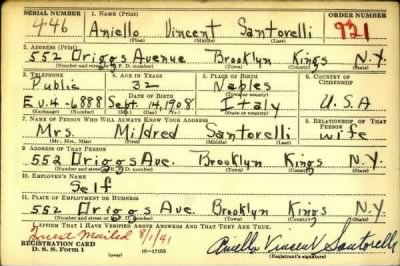 SERIAL NUMBER 1. NAME (Print) ORDER NUMBER
446 Aniello Vincent Santorelli 921
(First) (Middle) (Last)
2. ADDRESS (Print)
552 Driggs Avenue Brooklyn Kings N.Y.
(Number and street or R. F. D. number) (Town) (County) (State)
3. TELEPHONE 4. AGE IN YEARS 5. PLACE OF BIRTH 6. COUNTRY OF CITIZENSHIP
Public 32 Naples
DATE OF BIRTH
Ev.4-6888 Sept. 14, 1908 Italy U.S.A
(Exchange) (Number) (Mo.) (Day) (Yr.) (State or country)
7. NAME OF PERSON WHO WILL ALWAYS KNOW YOUR ADDRESS 8. RELATIONSHIP OF THAT PERSON
Mrs. Mildred Santorelli wife
(Mr., Mrs., Miss) (First) (Middle) (Last)
9. ADDRESS OF THAT PERSON
552 Driggs Ave. Brooklyn Kings N.Y.
(Number and street or R. F. D. number) (Town) (County) (State)
10. EMPLOYER'S NAME
Self
11. PLACE OF EMPLOYMENT OR BUSINESS
552 Driggs Ave Brooklyn Kings N.Y.
(Number and street or R. F. D. number) (Town) (County) (State)
I AFFIRM THAT I HAVE VERIFIED ABOVE ANSWERS AND THAT THEY ARE TRUE.
Quest Mailed 8/1/41
REGISTRATION CARD
D. S. S. Form 1 16-17105 Aniello Vincent Santorelli
(Registrant's signature)